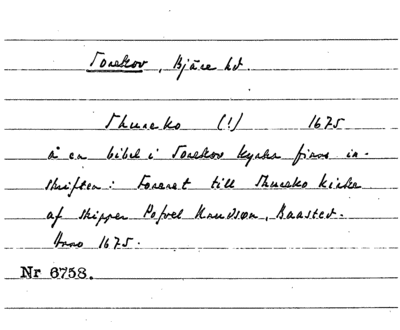 Torekov, Bjäre hd.
Thureko (!) 1675
å en bibel i Torekov kyrka finns in-
skriften: Foræret till Thureko Kirke
af skipper Pofvel Knudsøn, Baasted.
Anno 1675.
Nr 6758.